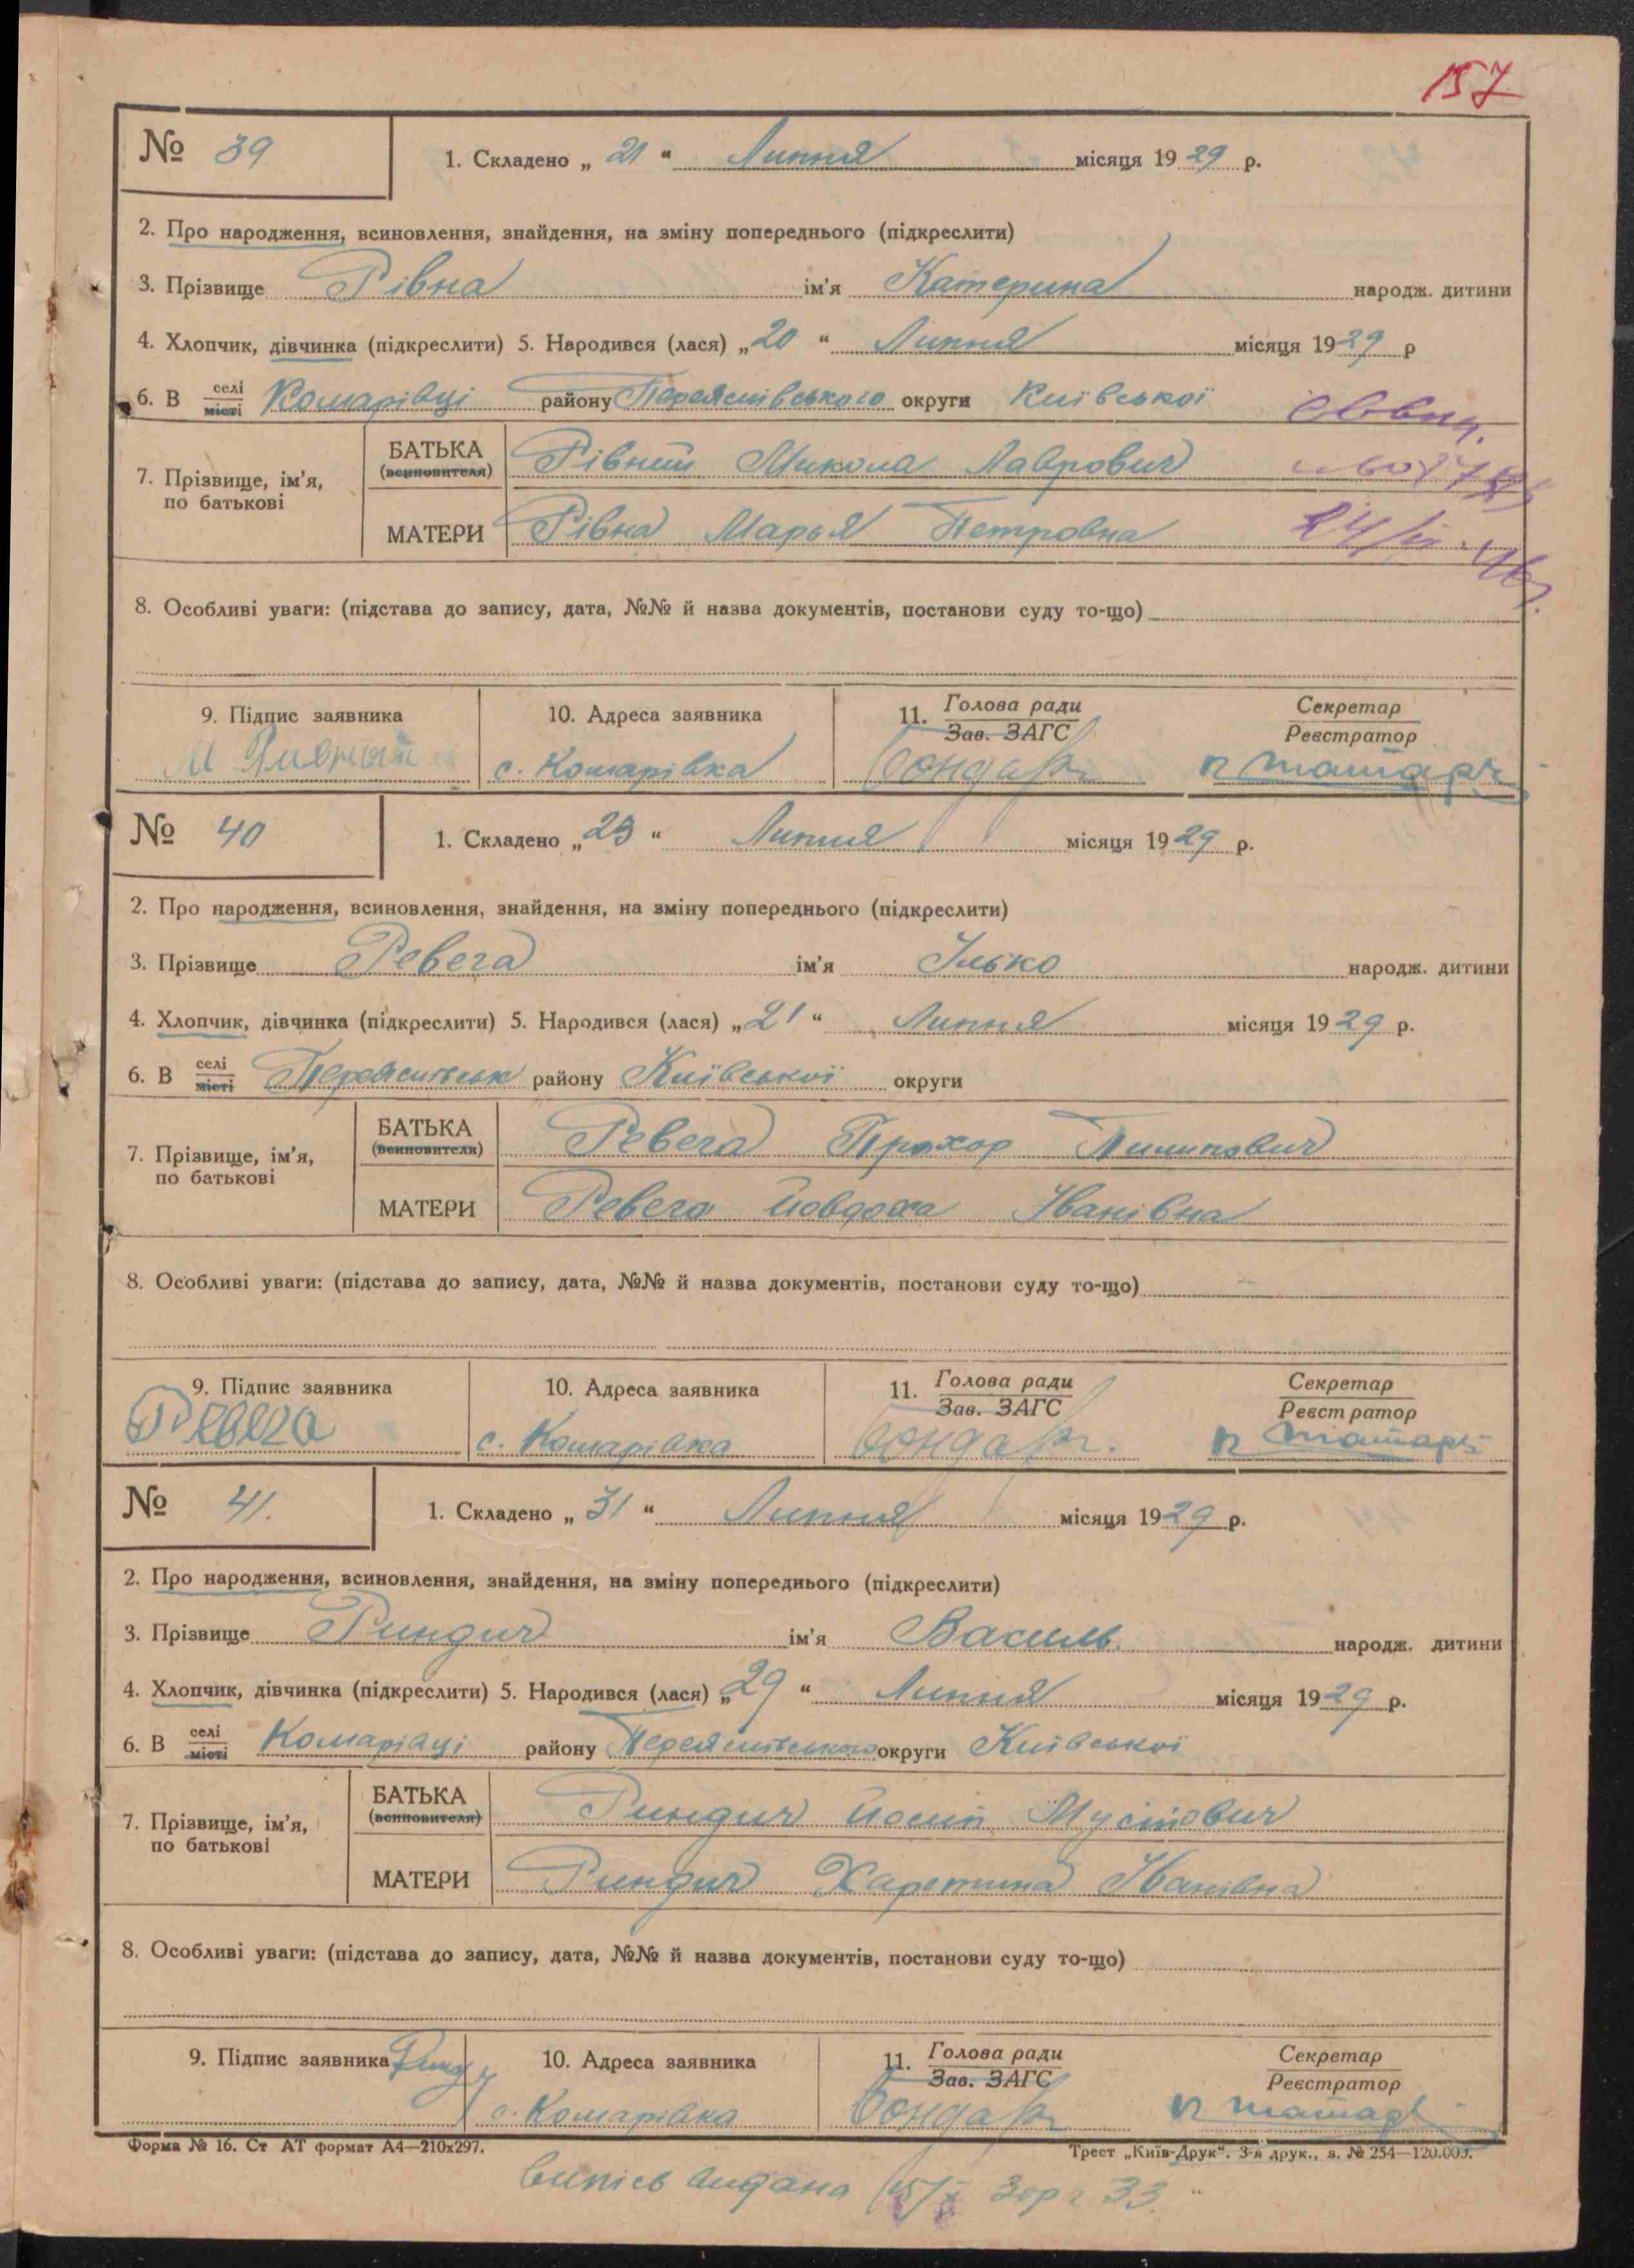 157
№ 39
1. Складено „ 21 “ Липня місяця 1929 р.
2. Про народження, всиновлення, знайдення, на зміну попереднього (підкреслити)
3. Прізвище Рівна ім'я Катерина народж. дитини
4. Хлопчик, дівчинка (підкреслити) 5. Народився (лася) „20 “ Липня місяця 1929 р
6. В селі місті Комарівці району Переяславського округи Київської
7. Прізвище, ім'я, по батькові
БАТЬКА (всиновителя) Рівний Микола Лаврович
МАТЕРИ Рівна Марья Петровна
8. Особливі уваги: (підстава до запису, дата, №№ й назва документів, постанови суду то-що)
9. Підпис заявника 10. Адреса заявника 11. Голова ради Зав. ЗАГС Секретар Реєстратор
с. Комарівка Бондар
№ 40
1. Складено „23 “ Липня місяця 1929 р.
2. Про народження, всиновлення, знайдення, на зміну попереднього (підкреслити)
3. Прізвище Ревега ім'я Ілько народж. дитини
4. Хлопчик, дівчинка (підкреслити) 5. Народився (лася) „21 “ Липня місяця 1929 р.
6. В селі місті району Київської округи
7. Прізвище, ім'я, по батькові
БАТЬКА (всиновителя) Ревега Прохор Пилипович
МАТЕРИ Ревега Йовдоха Іванівна
8. Особливі уваги: (підстава до запису, дата, №№ й назва документів, постанови суду то-що)
9. Підпис заявника 10. Адреса заявника 11. Голова ради Зав. ЗАГС Секретар Реєстратор
Ревега с. Комарівка Бондар.
№ 41.
1. Складено „ 31 “ Липня місяця 1929 р.
2. Про народження, всиновлення, знайдення, на зміну попереднього (підкреслити)
3. Прізвище Риндич ім'я Василь народж. дитини
4. Хлопчик, дівчинка (підкреслити) 5. Народився (лася) „29 “ Липня місяця 1929 р.
6. В селі місті Комарівці району округи Київської
7. Прізвище, ім'я, по батькові
БАТЬКА (всиновителя) Риндич Йосип Мусійович
МАТЕРИ Риндич Харетина Іванівна
8. Особливі уваги: (підстава до запису, дата, №№ й назва документів, постанови суду то-що)
9. Підпис заявника 10. Адреса заявника 11. Голова ради Зав. ЗАГС Секретар Реєстратор
с. Комарівка Бондар
Форма № 16. Ст АТ формат А4—210х297. Трест „Київ-Друк“. 3-я друк., з. № 254—120.000.
видана 33